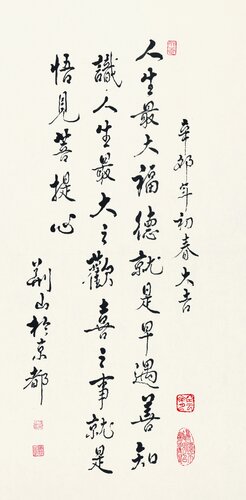 辛卯年初春大吉
人生最大福德就是早遇善知
識人生最大之歡喜之事就是
悟見菩提心
荆山於京都